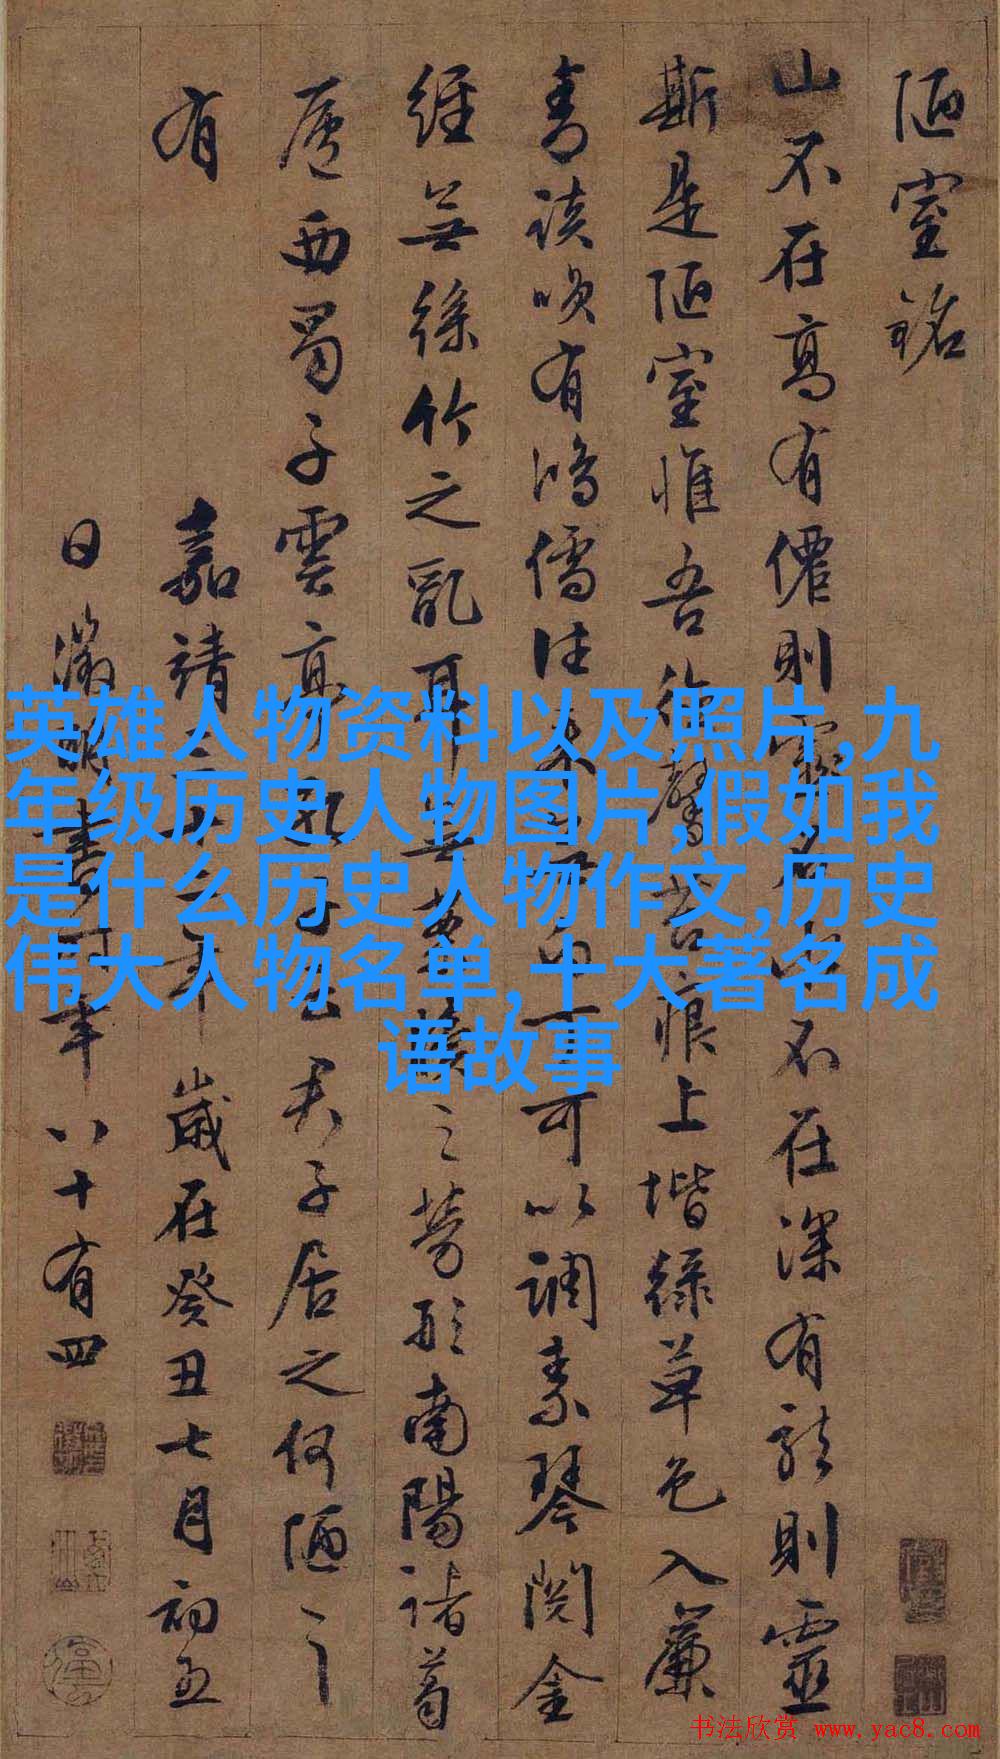 陋室銘
山不在高有僊則名水不在深有龍則靈
斯是陋室惟吾德馨苔痕上堦綠草色入簾
青談咲有鴻儒往来無白丁可以調素琴閱金
經無絲竹之亂耳無案牘之勞形南陽諸葛
廬西蜀子雲亭孔子云君子居之何陋之
有
嘉靖三十二年歲在癸丑七月初五
日徵明書時年八十有四
英雄人物资料以及照片,九
年级历史人物图片,假如我
是什么历史人物作文,历史
伟大人物名单,十大著名成
语故事
书法欣赏 www.yac8.com